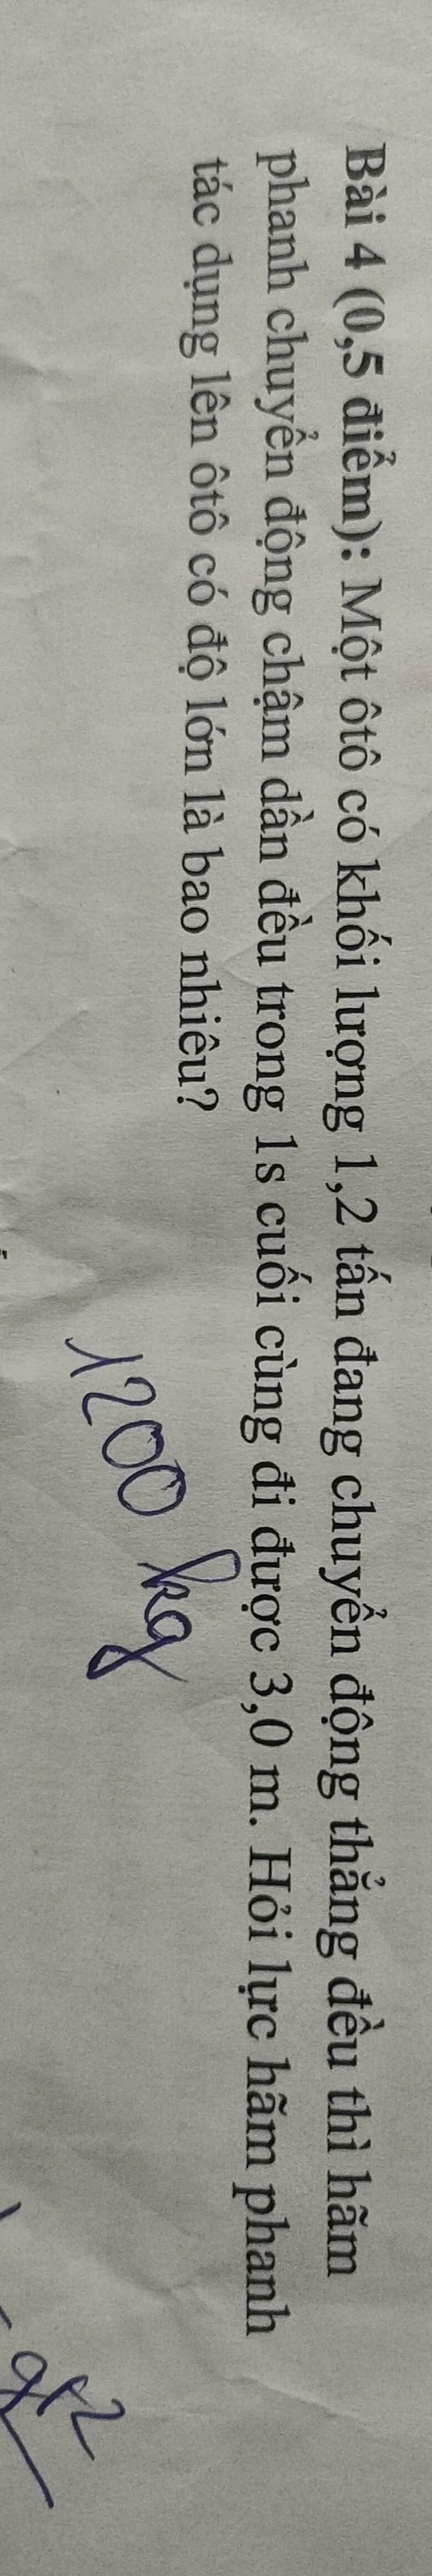 Bài 4 (0,5 điểm): Một ôtô có khối lượng 1,2 tấn đang chuyển động thẳng đều thì hãm
phanh chuyển động chậm dần đều trong 1s cuối cùng đi được 3,0 m. Hỏi lực hãm phanh
tác dụng lên ôtô có độ lớn là bao nhiêu?
1200 kg